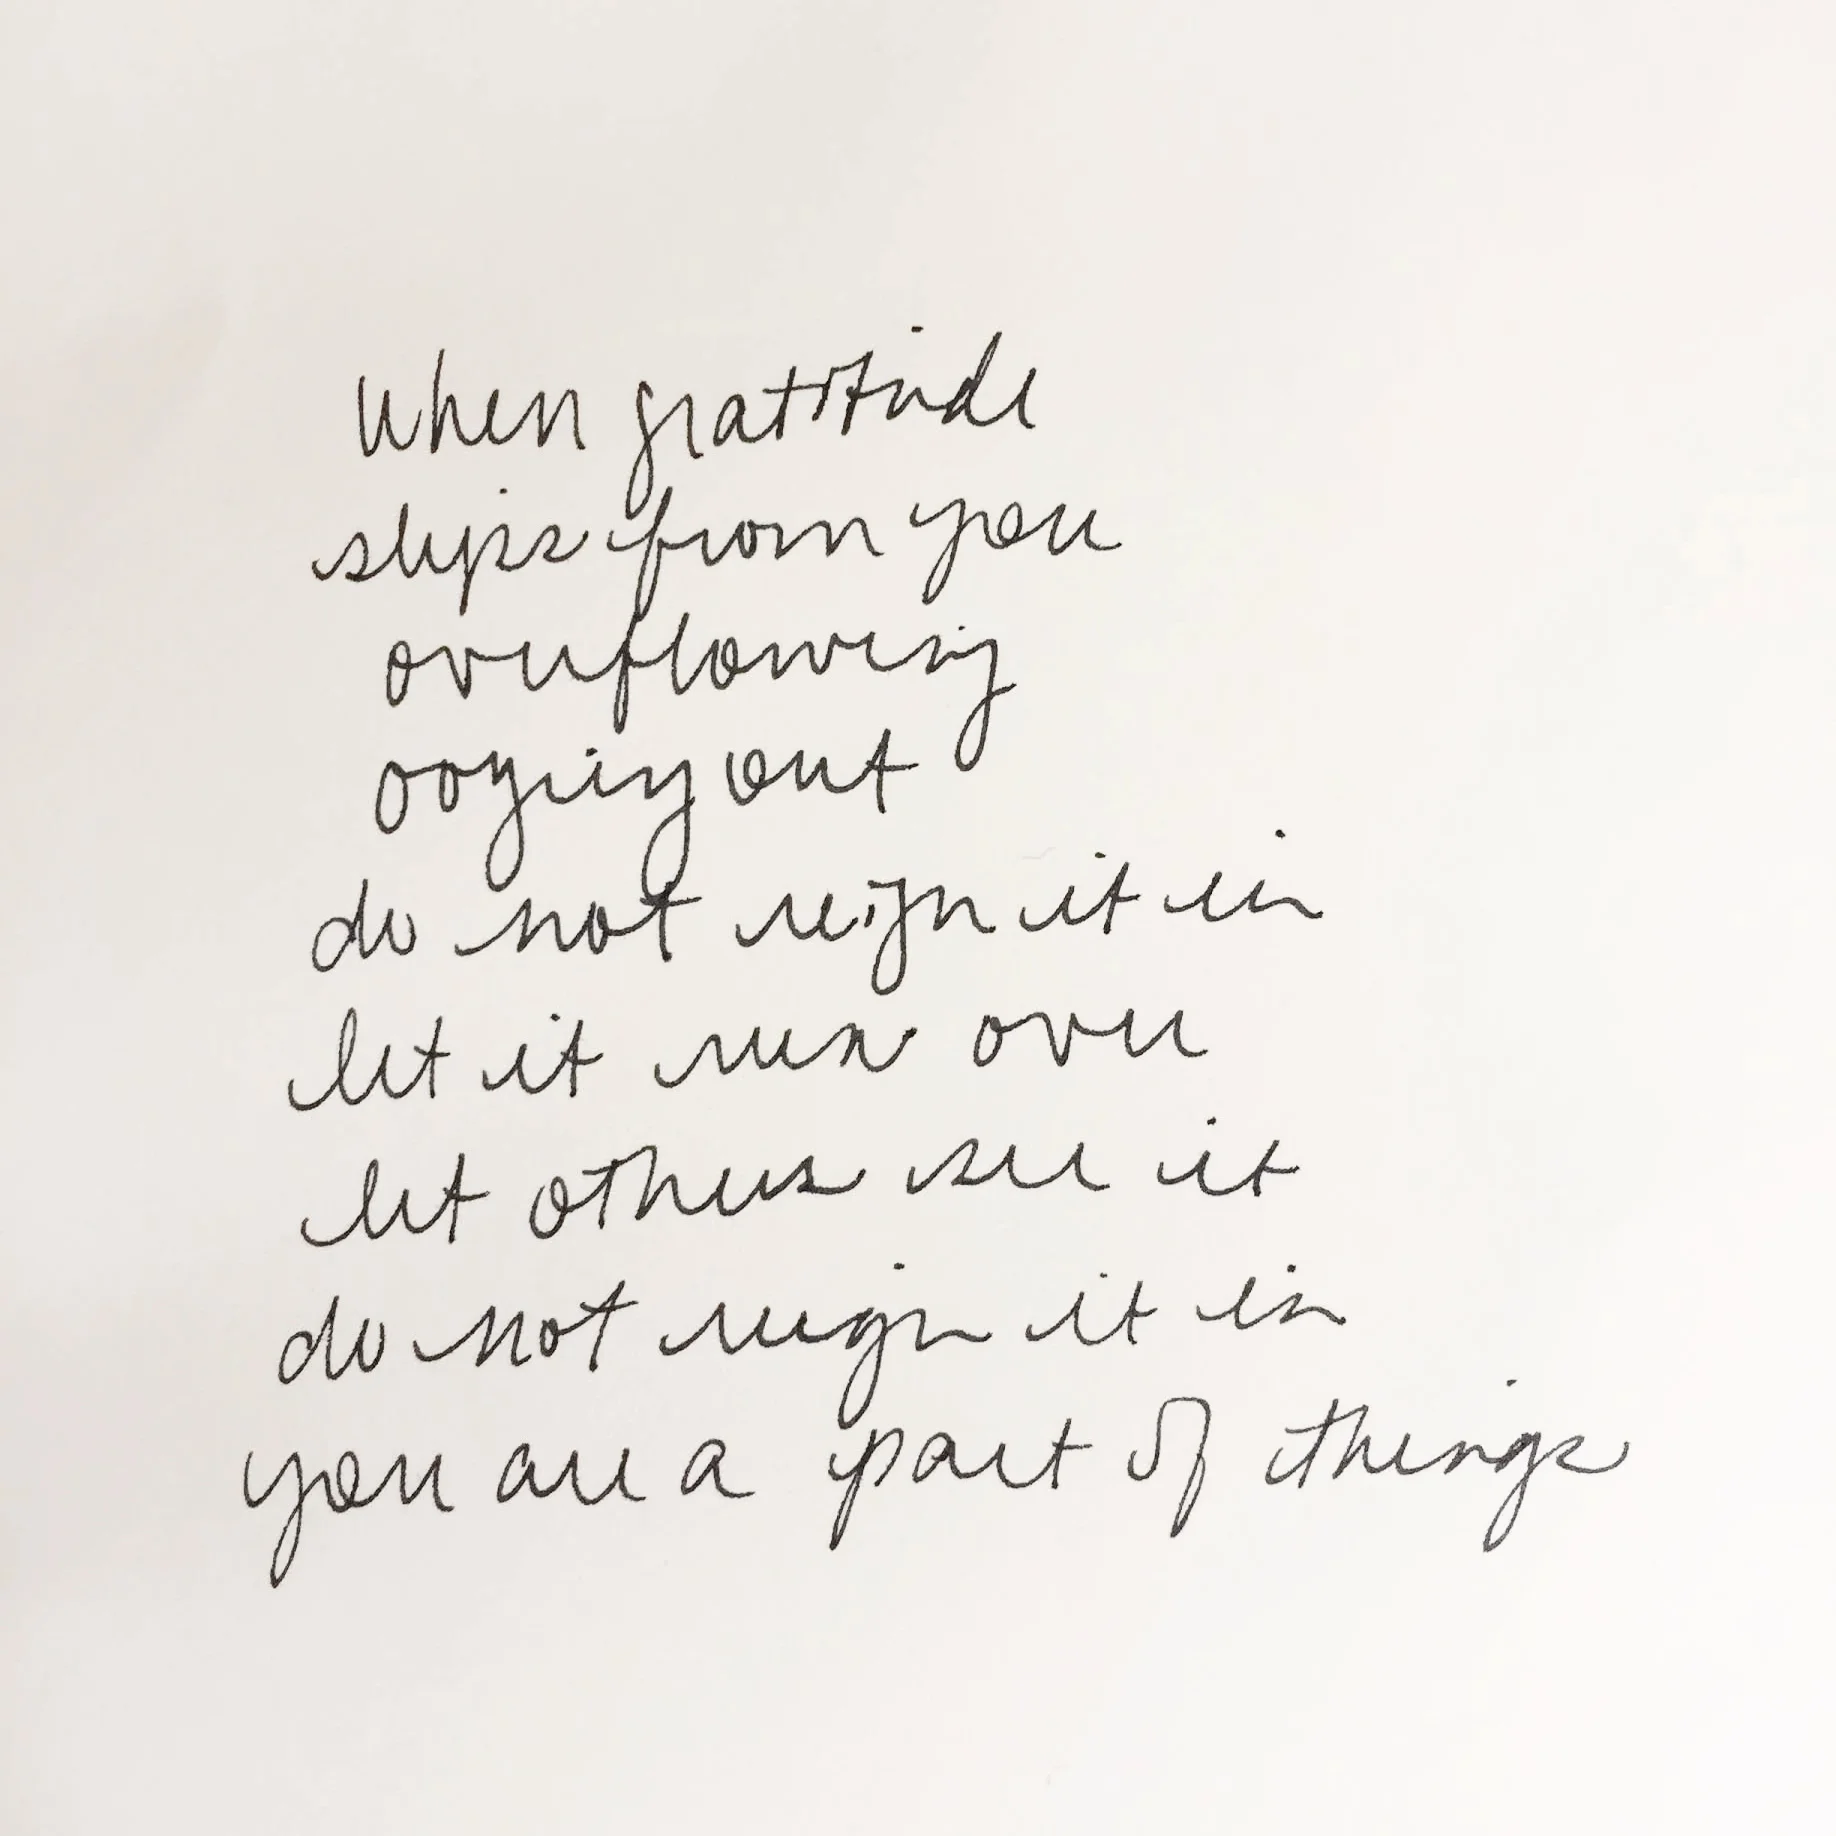 When gratitude
slips from you
overflowing
oozing out
do not reign it in
let it run over
let others see it
do not reign it in
you are a part of things